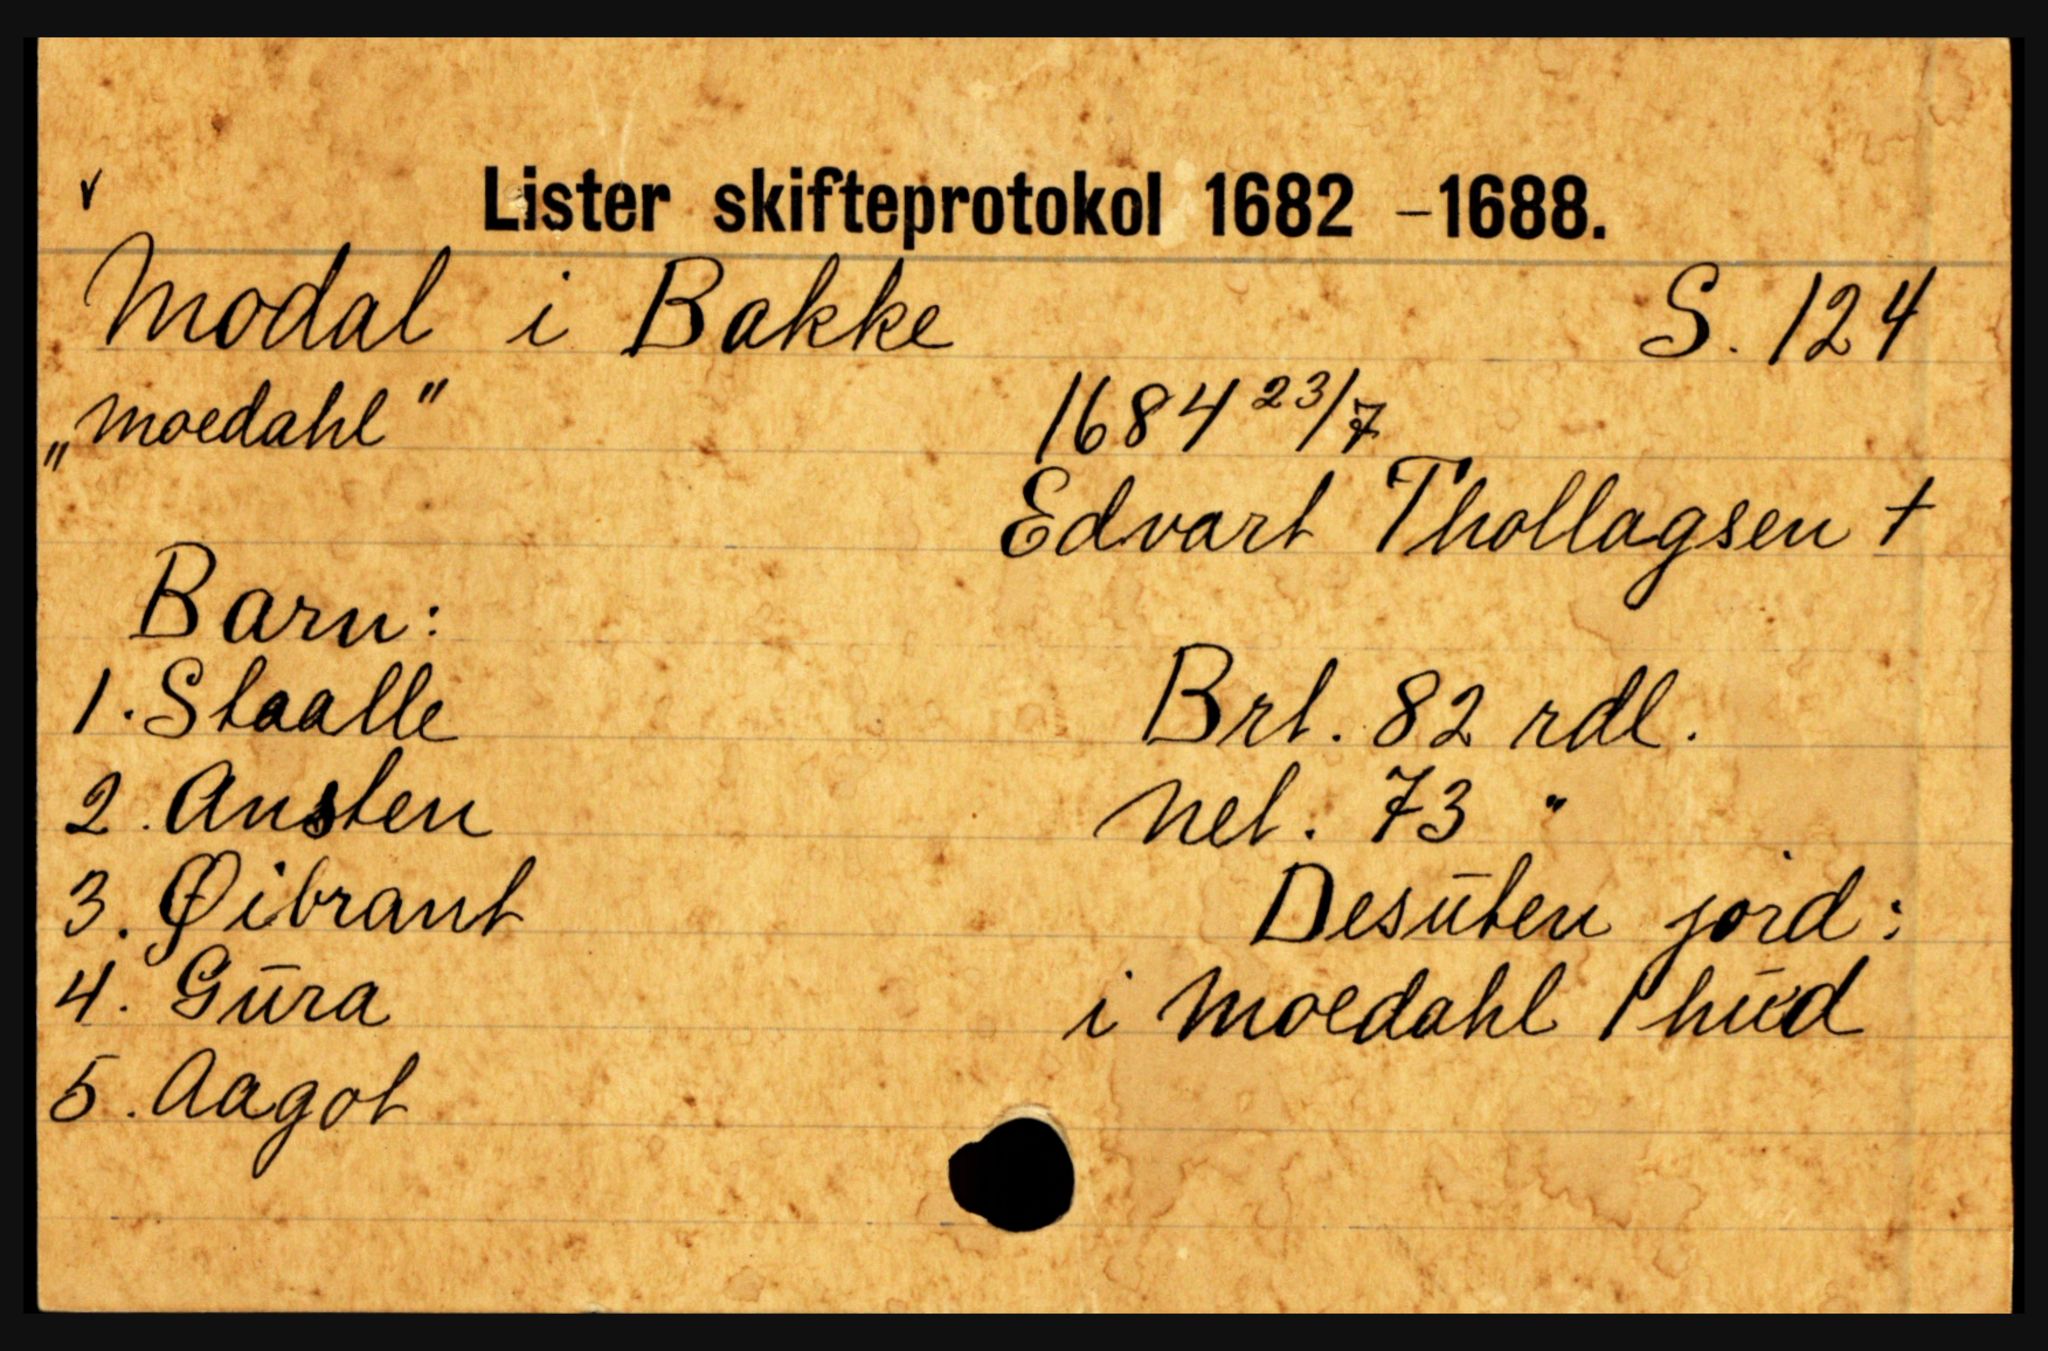 v
Lister skifteprotokol 1682 –1688.
Modal i Bakke S. 124
„Moedahl" 1684 23/7
Edvart Thollagsen +
Barn:
1. Staalle Brt. 82 rdl.
2. Ansten Net. 73 "
3. Øibrant Desūten jord:
4. Gūra i Moedahl 1 hūd
5. Aagot